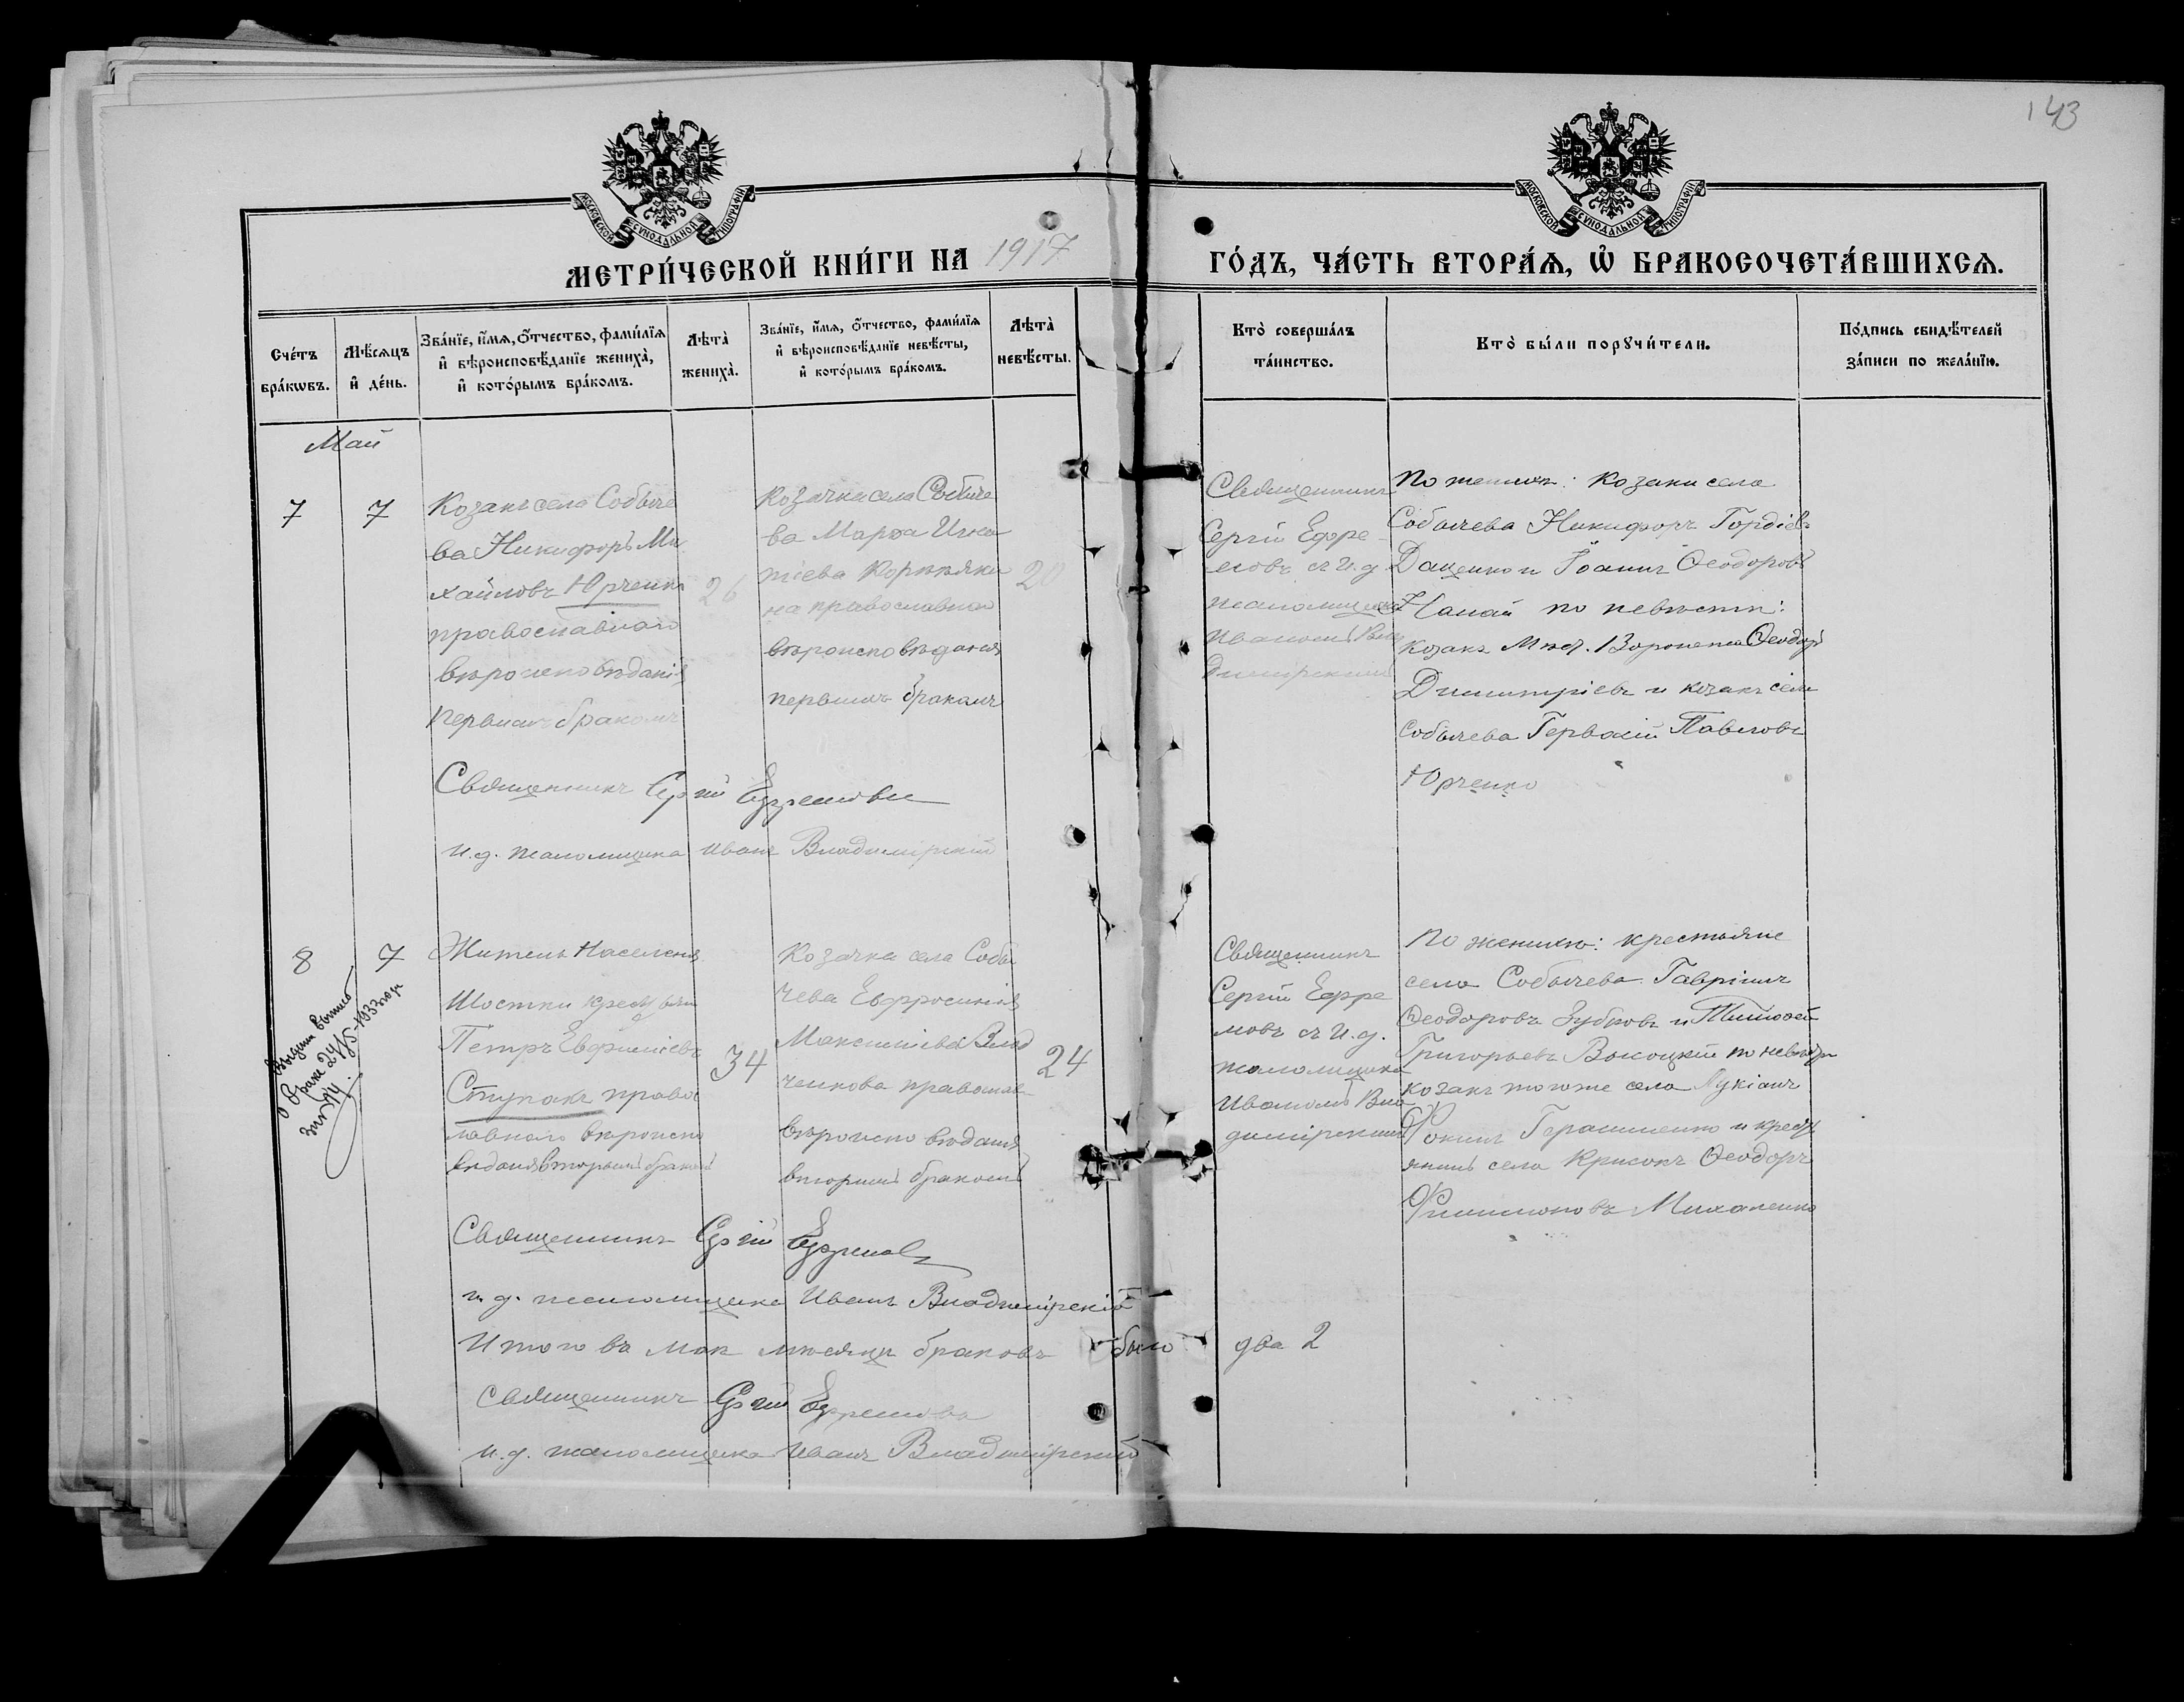 143
МОСКОВСКОЙ СѴНОДАЛЬНОЙ ТИПОГРАФІИ
МОСКОВСКОЙ СѴНОДАЛЬНОЙ ТИПОГРАФІИ
МЕТРИ́ЧЕСКОЙ КНИ́ГИ НА 1917 ГО́ДЪ, ЧА́СТЬ ВТОРА́Ѧ, Ѽ БРАКОСОЧЕТА́ВШИХСѦ.
Сче́тъ
бра́кѡвъ.
Мѣ́сѧцъ
и҆ де́нь.
Зва́нїе, и҆́мѧ, ѻ҆́тчество, фами́лїѧ
и҆ вѣроисповѣ́данїе жениха̀,
и҆ кото́рымъ бра́комъ.
Лѣта̀
жениха̀.
Зва́нїе, и҆́мѧ, ѻ҆́тчество, фами́лїѧ
и҆ вѣроисповѣ́данїе невѣ́сты,
и҆ кото́рымъ бра́комъ.
Лѣта̀
невѣ́сты.
Кто̀ соверша́лъ
та́инство.
Кто̀ бы́ли порꙋчи́тели.
По́дпись свидѣ́телей
за́писи по жела́нїю.
Май
7
7
Козакъ села Собыче
ва Никифоръ Ми
хайловъ Юрченко
православнаго
вѣроисповѣданія
первымъ бракомъ
26
Козачка села Собыче
ва Марѳа Игна
тіева Корнѣяки
на православнаго
вѣроисповѣданія
первымъ бракомъ
20
Священникъ
Сергій Ефре
мовъ съ и.д.
псаломщика
Иваномъ Вла
димірскимъ
По женихѣ: козаки села
Собычева Никифоръ Гордіев
Даценко и Іоаннъ Ѳеодоровъ
по невѣстѣ:
козакъ Мѣст. Воронежа Ѳеодоръ
Димитріевъ и козакъ села
Собычева Гервасій Павловъ
Юрченко
Священникъ Сергій Ефремовъ
и.д. псаломщика Иванъ Владимірскій
8
7
Житель Населенія
Шостки крестьян
Петръ Евфиміевъ
Ступакъ правос
лавнаго вѣроиспо
вѣданія вторымъ бракомъ
34
Козачка села Собы
чева Евфросинія
Максимова
ченкова православ
вѣроисповѣданія
вторымъ бракомъ
24
Священникъ
Сергій Ефре
мовъ съ и.д.
псаломщика
Иваномъ Вла
димірскимъ
По женихѣ: крестьяне
села Собычева Гавріилъ
Ѳеодоровъ Зубковъ и Тимоѳей
Григорьевъ Высоцкій по невѣстѣ
козакъ того же села Лукіанъ
Фокинъ Герасименко и кресть
янинъ села Крисокъ Ѳеодоръ
Филимоновъ Михаленко
о браке 24/5-1933 года
Священникъ Сергій Ефремовъ
и.д. псаломщика Иванъ Владимірскій
Итого въ Мая мѣсяцѣ браковъ было два 2
Священникъ Сергій Ефремовъ
и.д. псаломщика Иванъ Владимірскій